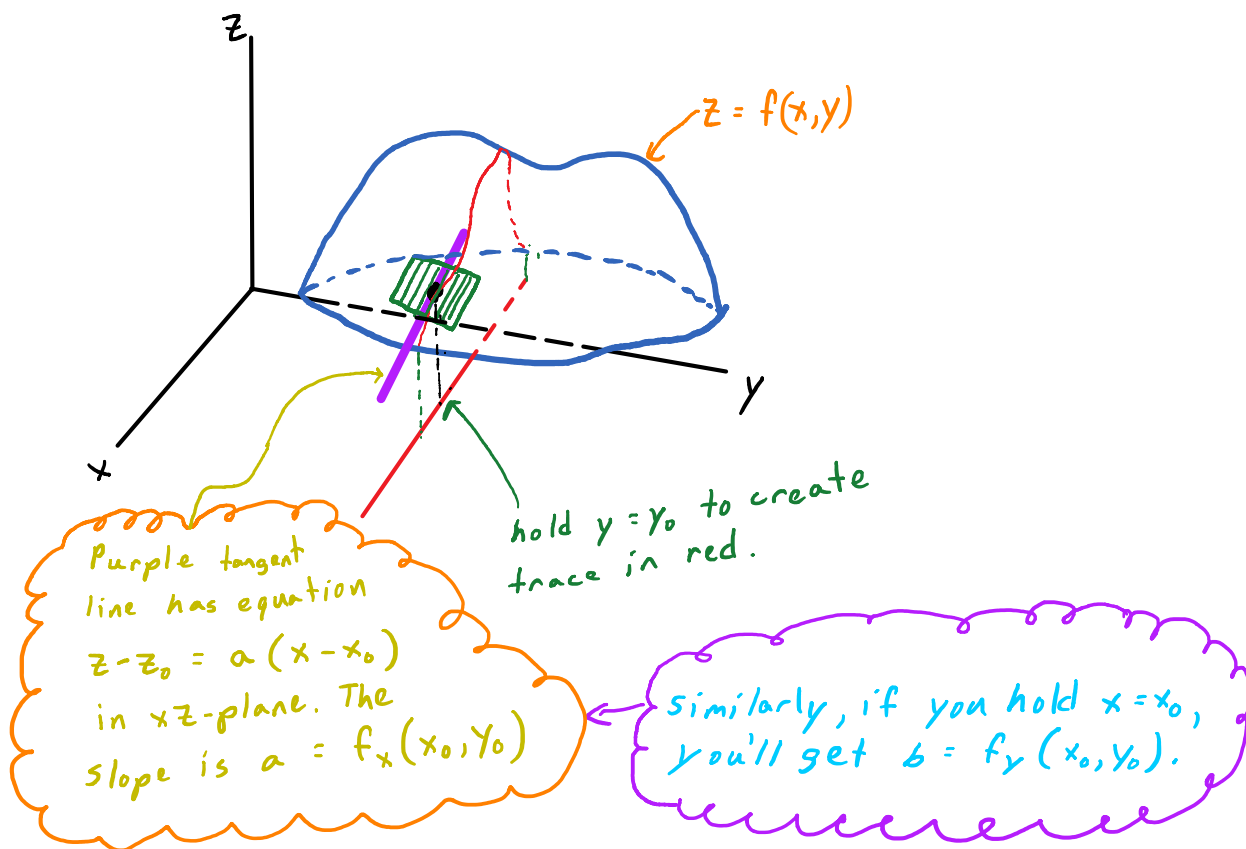 z
z = f(x,y)
y
x
hold y = y₀ to create
trace in red.
Purple tangent
line has equation
z-z₀ = a(x-x₀)
in xz-plane. The
slope is a = fₓ(x₀,y₀)
similarly, if you hold x=x₀,
you'll get b = f_y(x₀,y₀).